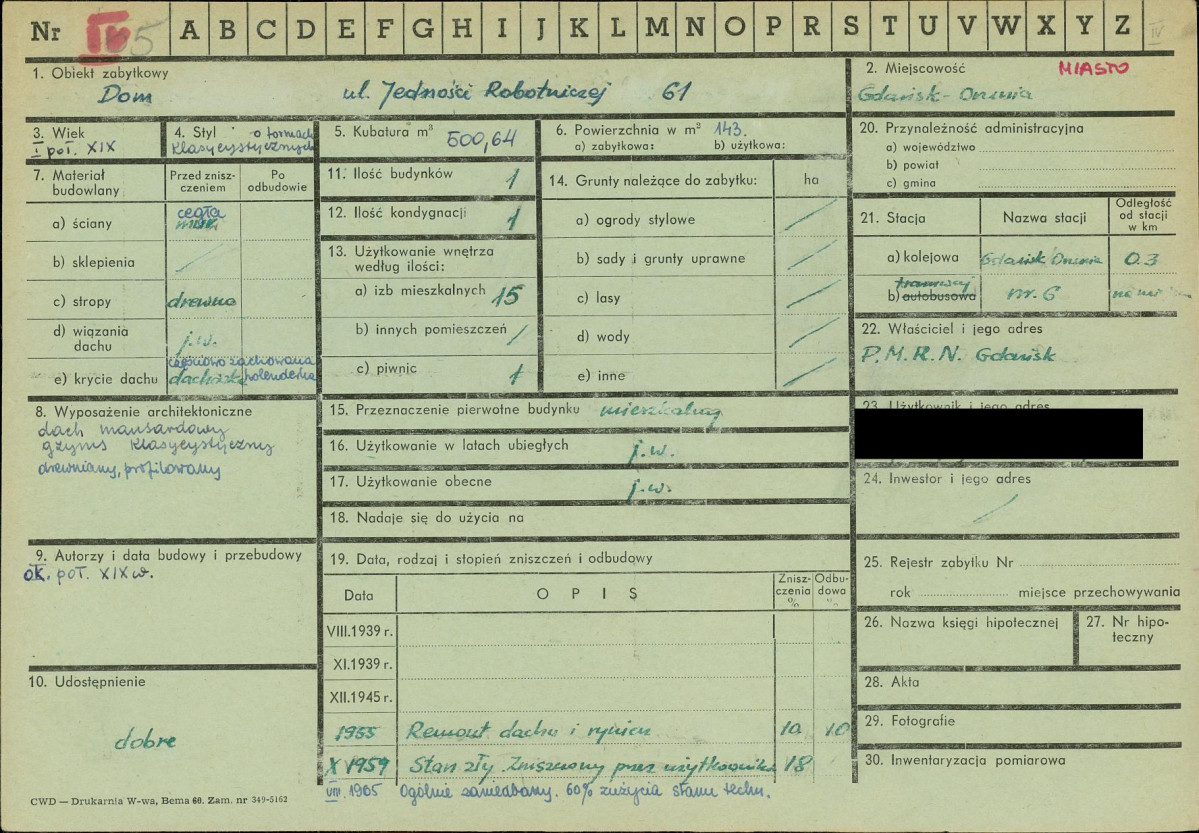 Nr IV 5 A B C D E F G H I J K L M N O P R S T U V W X Y Z IV
1. Obiekt zabytkowy
Dom ul. Jedności Robotniczej 61
2. Miejscowość MIASTO
Gdańsk-Orunia
3. Wiek
I poł. XIX
4. Styl o formach
klasycystycznych
5. Kubatura m³ 500,64
6. Powierzchnia w m² 143.
a) zabytkowa: b) użytkowa:
20. Przynależność administracyjna
a) województwo
b) powiat
c) gmina
7. Materiał
budowlany
Przed znisz-
czeniem
Po
odbudowie
a) ściany cegła
b) sklepienia
c) stropy drewno
d) wiązania
dachu j.w.
częściowo zachowana
e) krycie dachu dachówka holenderka
11. Ilość budynków 1
12. Ilość kondygnacji 1
13. Użytkowanie wnętrza
według ilości:
a) izb mieszkalnych 15
b) innych pomieszczeń
c) piwnic 1
14. Grunty należące do zabytku: ha
a) ogrody stylowe
b) sady i grunty uprawne
c) lasy
d) wody
e) inne
21. Stacja Nazwa stacji
Odległość
od stacji
w km
a) kolejowa Gdańsk/Orunia 0.3
tramwaj
b) autobusowa nr. 6
22. Właściciel i jego adres
P.M.R.N. Gdańsk
8. Wyposażenie architektoniczne
dach mansardowy
gzyms klasycystyczny
drewniany, profilowany
15. Przeznaczenie pierwotne budynku mieszkalny
16. Użytkowanie w latach ubiegłych j.w.
17. Użytkowanie obecne j.w.
18. Nadaje się do użycia na
23. Użytkownik i jego adres
24. Inwestor i jego adres
9. Autorzy i data budowy i przebudowy
ok. poł. XIX w.
19. Data, rodzaj i stopień zniszczeń i odbudowy
Data OPIS
Znisz-
czenia
%
Odbu-
dowa
%
VIII.1939 r.
XI.1939 r.
XII.1945 r.
1955 Remont dachu i rynien 10 10
X 1959 Stan zły Zniszczony przez użytkownika 18
VIII. 1965 Ogólnie zaniedbany. 60% zużycia stanu techn.
25. Rejestr zabytku Nr
rok miejsce przechowywania
26. Nazwa księgi hipotecznej
27. Nr hipo-
teczny
10. Udostępnienie
dobre
28. Akta
29. Fotografie
30. Inwentaryzacja pomiarowa
CWD — Drukarnia W-wa, Bema 60. Zam. nr 349-5162